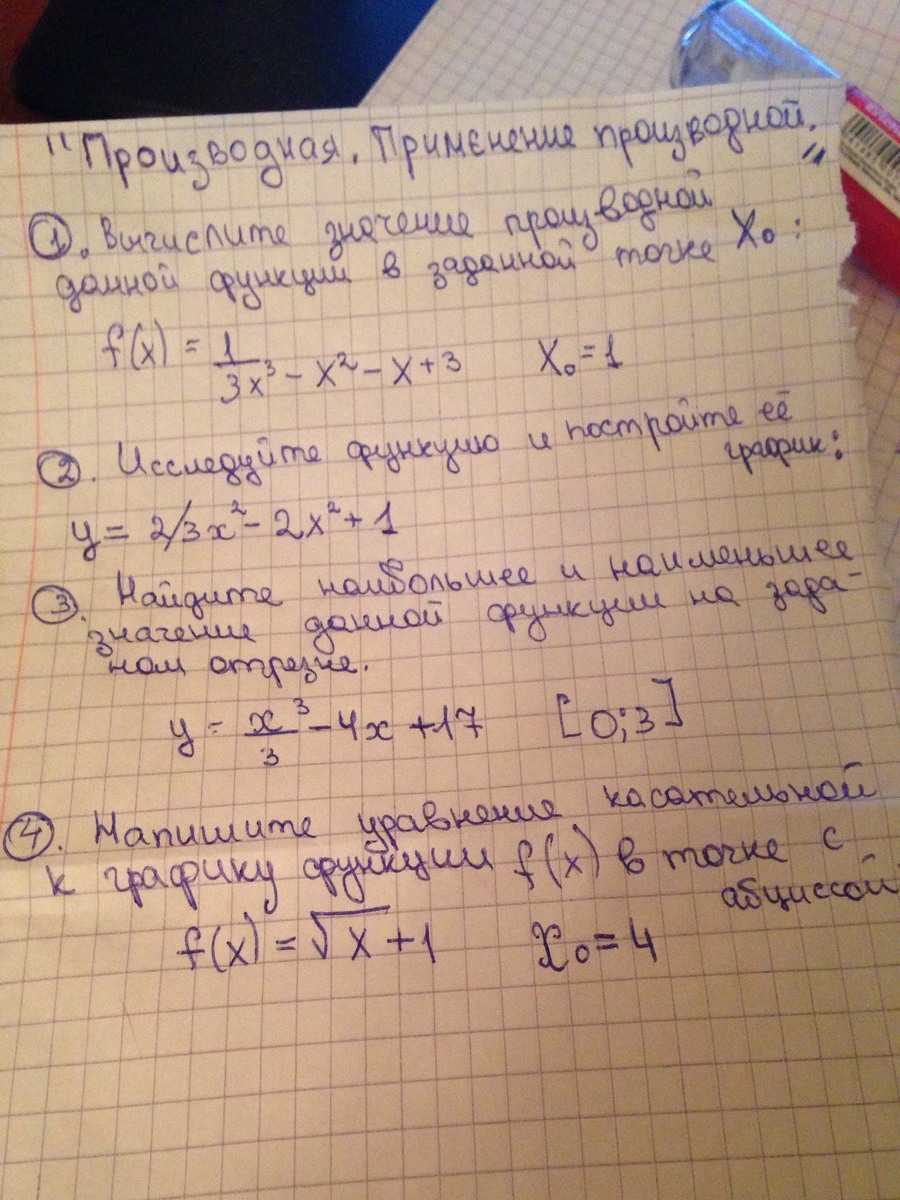 "Производная. Применение производной."
1. Вычислите значение производной
данной функции в заданной точке X₀:
f(x) = 1/3x³ - x² - x + 3 X₀ = 1
2. Исследуйте функцию и постройте её
график:
y = 2/3x² - 2x² + 1
3. Найдите наибольшее и наименьшее
значение данной функции на зада-
ном отрезке.
y = x³/3 - 4x + 17 [0;3]
4. Напишите уравнение касательной
к графику функции f(x) в точке с
абциссой
f(x) = √x + 1 x₀ = 4